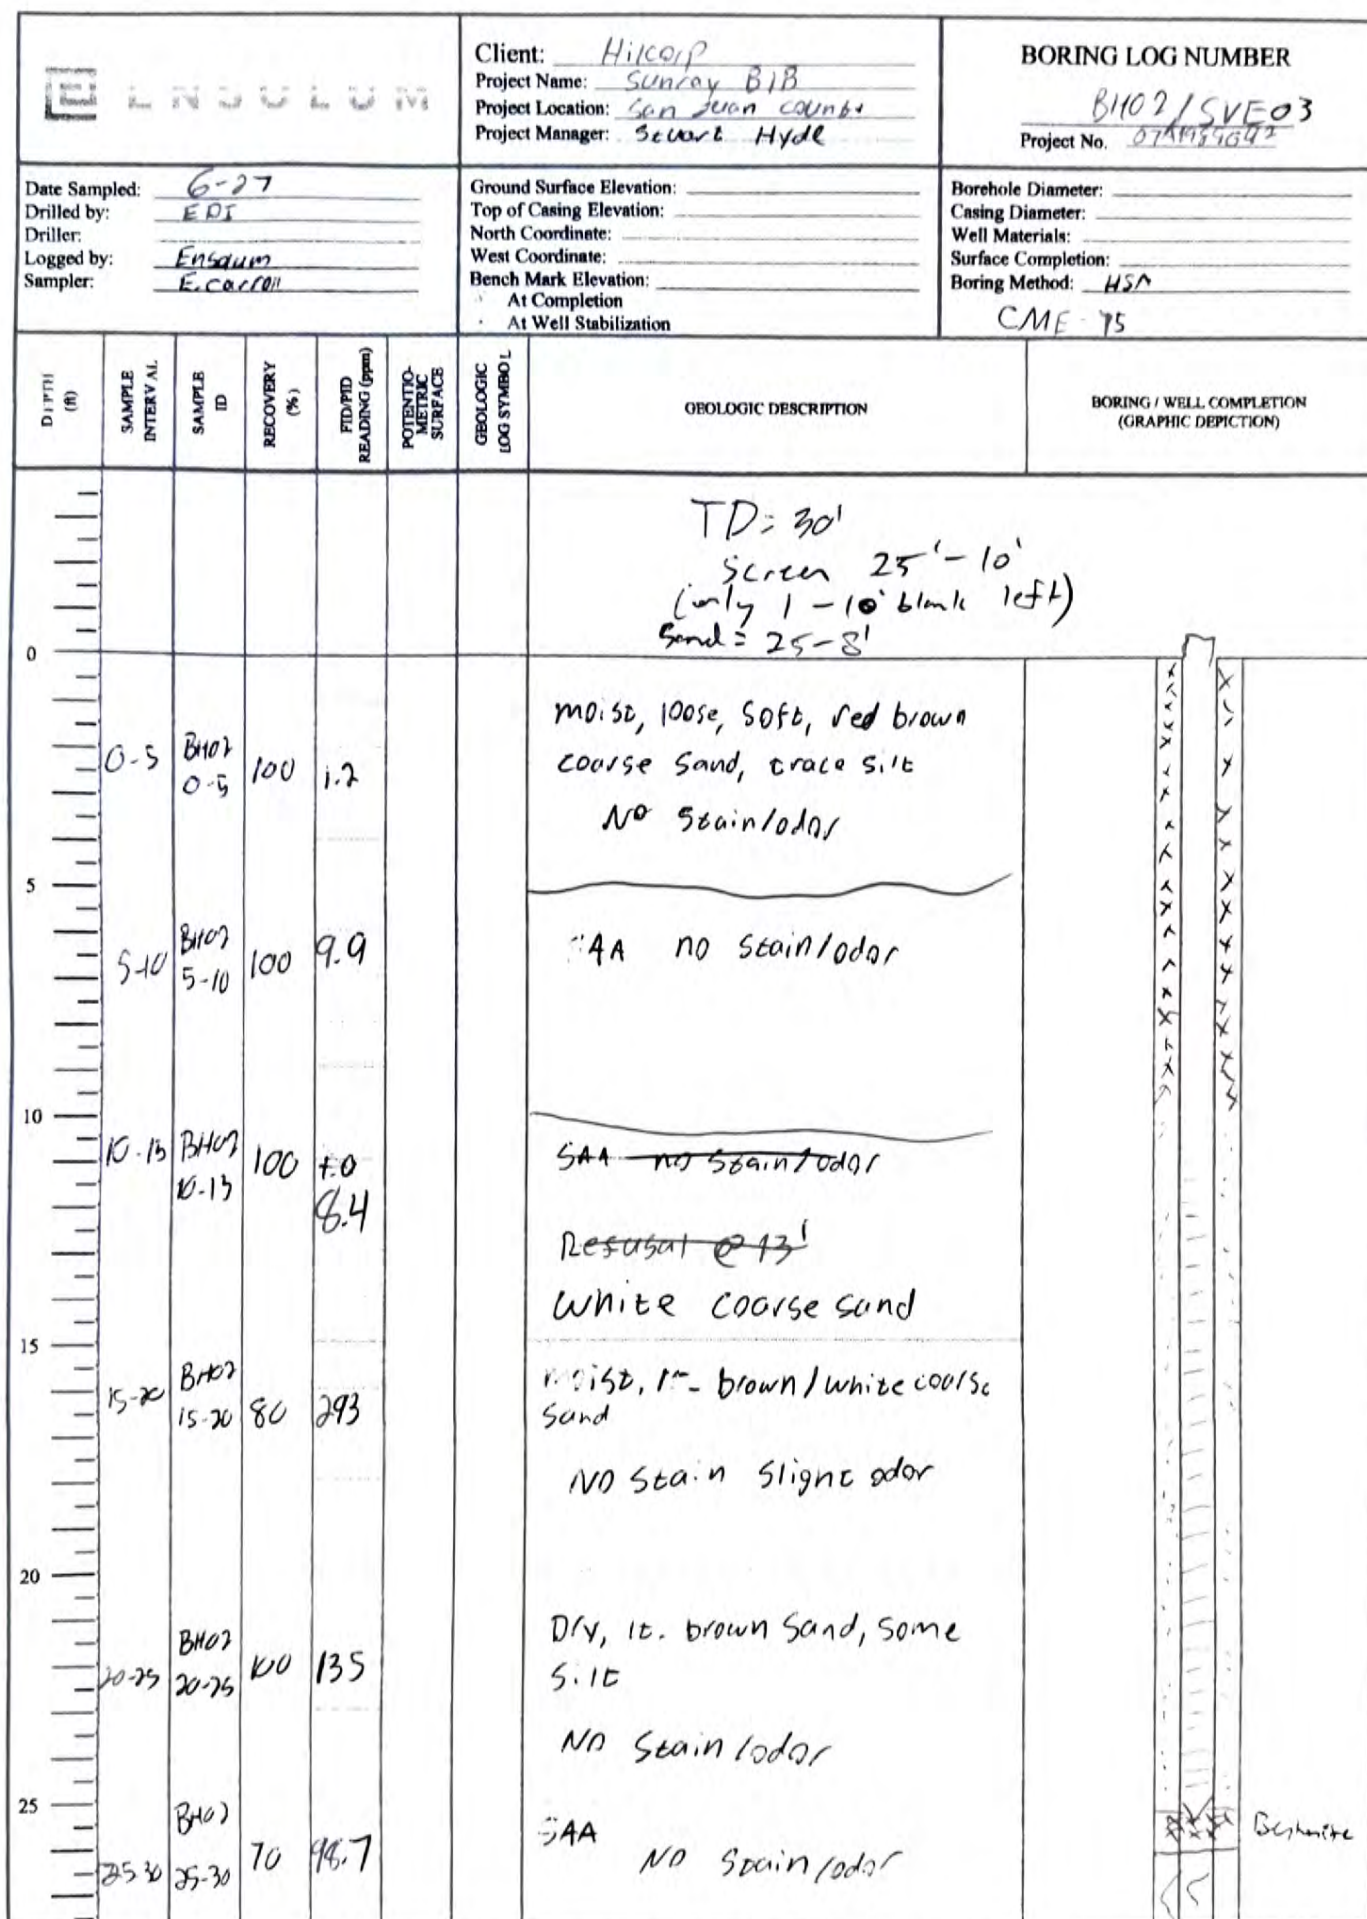 ENSOLUM
Client: Hilcorp
Project Name: Sunray B1B
Project Location: San Juan County
Project Manager: Stuart Hyde
BORING LOG NUMBER
BH02/SVE03
Project No.
Date Sampled: 6-27
Drilled by: EDI
Driller:
Logged by: Ensolum
Sampler: E. Carroll
Ground Surface Elevation:
Top of Casing Elevation:
North Coordinate:
West Coordinate:
Bench Mark Elevation:
At Completion
At Well Stabilization
Borehole Diameter:
Casing Diameter:
Well Materials:
Surface Completion:
Boring Method: HSA
CME-75
DEPTH (ft)
SAMPLE INTERVAL
SAMPLE ID
RECOVERY (%)
FID/PID READING (ppm)
POTENTIO-METRIC SURFACE
GEOLOGIC LOG SYMBOL
GEOLOGIC DESCRIPTION
BORING / WELL COMPLETION
(GRAPHIC DEPICTION)
TD = 30'
Screen 25'-10'
(only 1-10' blank left)
Sand = 25-8'
0
moist, loose, soft, red brown
0-5 BH02 0-5 100 1.2
coarse sand, trace silt
No stain/odor
5
5-10 BH02 5-10 100 9.9
SAA no stain/odor
10
10-13 BH02 10-13 100 8.4
SAA no stain/odor
Refusal @ 13'
white coarse sand
15
15-20 BH02 15-20 80 293
moist, brown/white coarse
sand
NO stain slight odor
20
20-25 BH02 20-25 100 135
Dry, lt. brown sand, some
silt
NO stain/odor
25
25-30 BH02 25-30 70 98.7
SAA
NO stain/odor
Bentonite